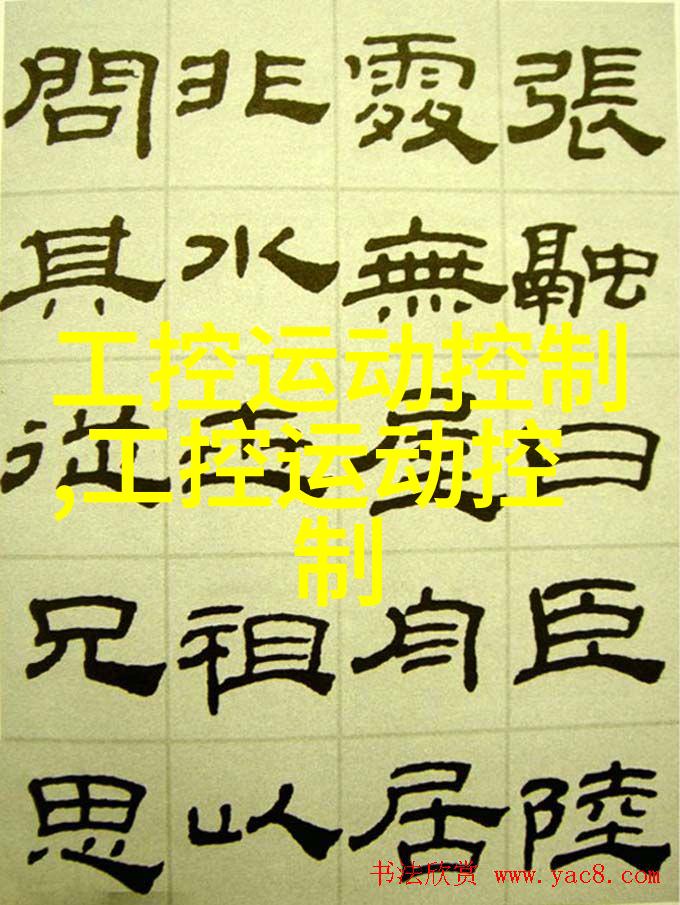 張融曰臣陸
處無屋舟居
非水祖以
問其從兄思
工控运动控制
,工控运动控
制
书法欣赏 www.yac8.com